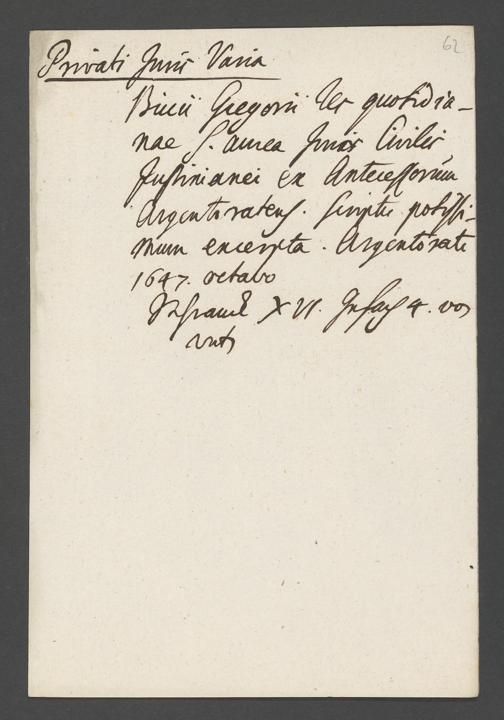 62
Privati Juris Varia
Bicii Gregorii Res quotidia-
nae S. aurea Juris Civilis
Justinianei ex Antecessorum
Argentoratens. Scriptis potissi-
mum excerpta. Argentorati
1647. octavo
Schranck XVI. Infach 4. von
unt